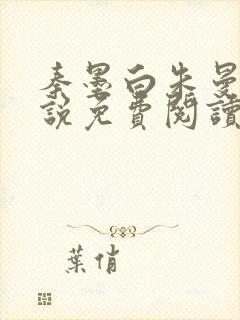 秦墨白朱曼
說免費閱讀
葉俏